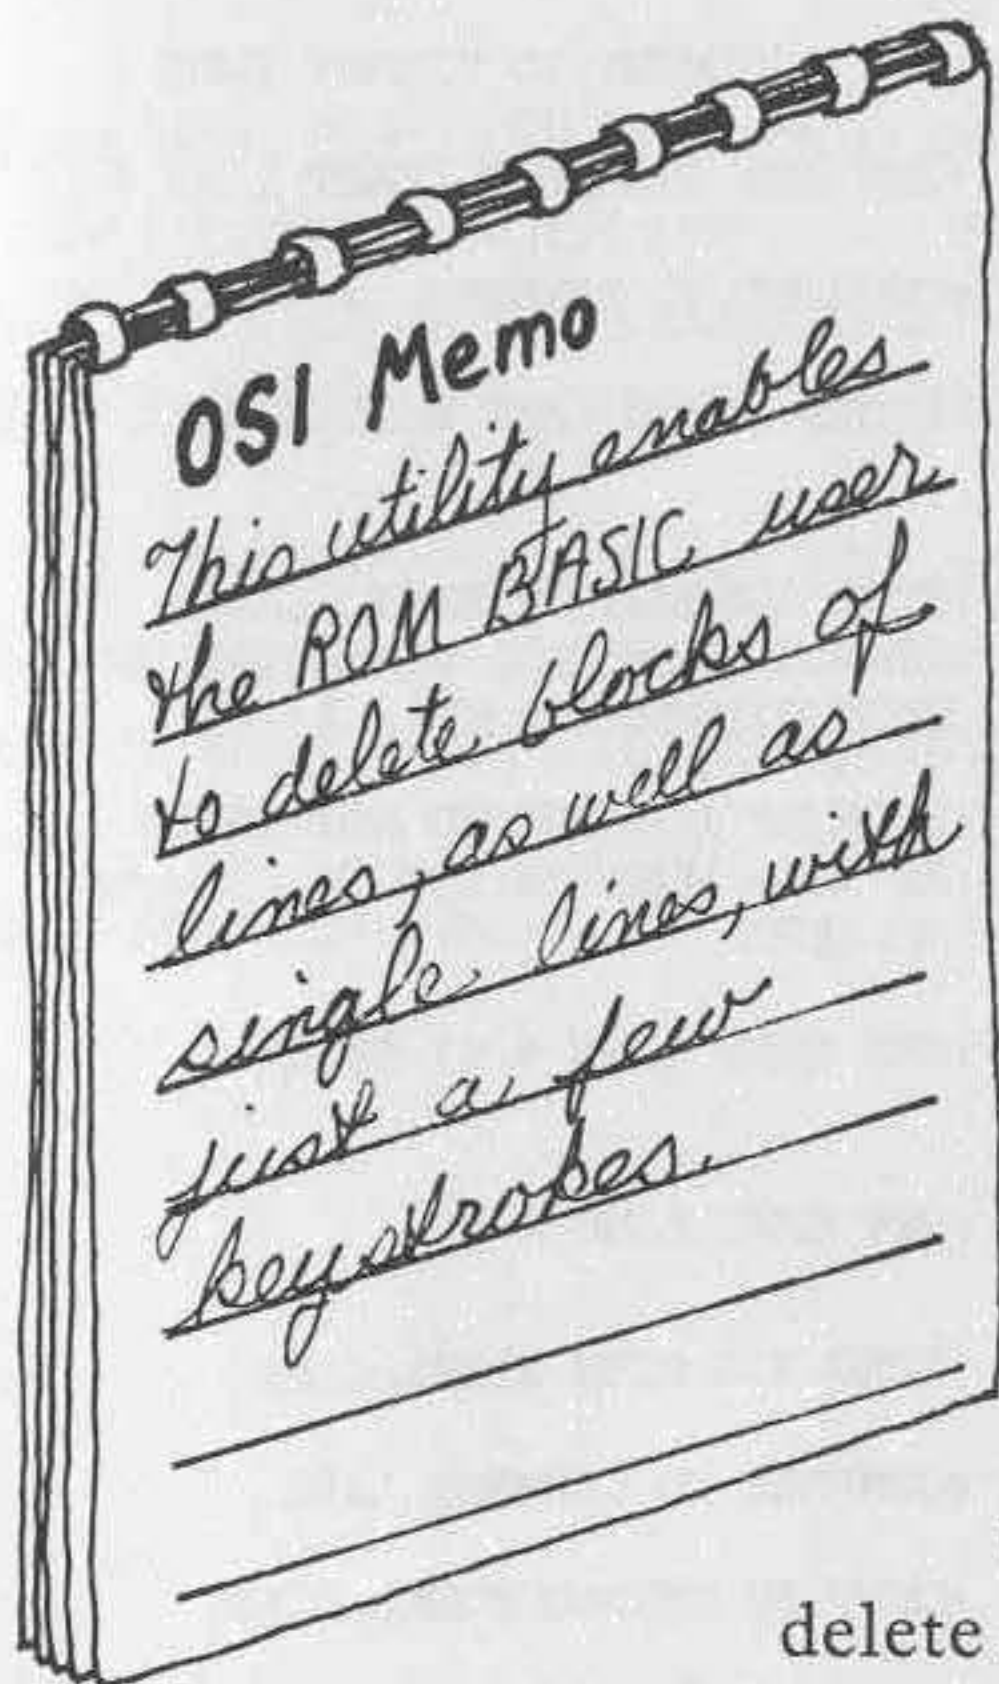 OSI Memo
This utility enables
the ROM BASIC user
to delete blocks of
lines, as well as
single lines, with
just a few
keystrokes.
delete